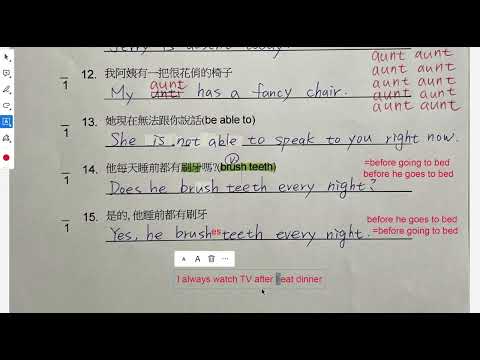 Jerry is absent today.
aunt aunt
aunt aunt
aunt aunt
aunt aunt
aunt aunt
1 12. 我阿姨有一把很花俏的椅子
aunt
My anti has a fancy chair.
1 13. 她現在無法跟你說話(be able to)
She is not able to speak to you right now.
(V)
1 14. 他每天睡前都有刷牙嗎?(brush teeth)
=before going to bed
before he goes to bed
Does he brush teeth every night?
1 15. 是的,他睡前都有刷牙
before he goes to bed
=before going to bed
Yes, he brushes teeth every night.
A
I always watch TV after eat dinner